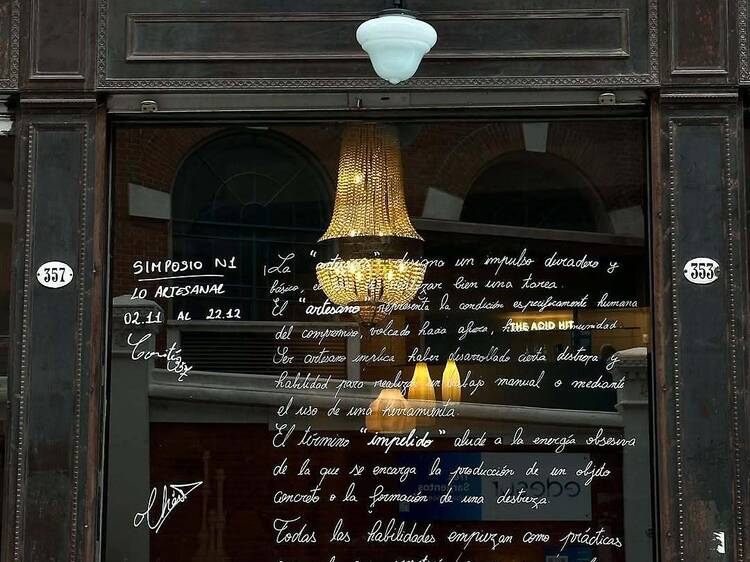 357
353
SIMPOSIO N1
LO ARTESANAL
02.11 AL 22.12
La designa un impulso duradero y
básico, el bien una tarea.
El "artesano" representa la condición específicamente humana
del compromiso, volcado hacia afuera,
THE ACID HIT
Ser artesano implica haber desarrollado cierta destreza y
habilidad para realizar un trabajo manual o mediante
el uso de una herramienta.
El término "impelido" alude a la energía obsesiva
de la que se encarga la producción de un objeto
concreto o la formación de una destreza.
Todas las habilidades empiezan como prácticas